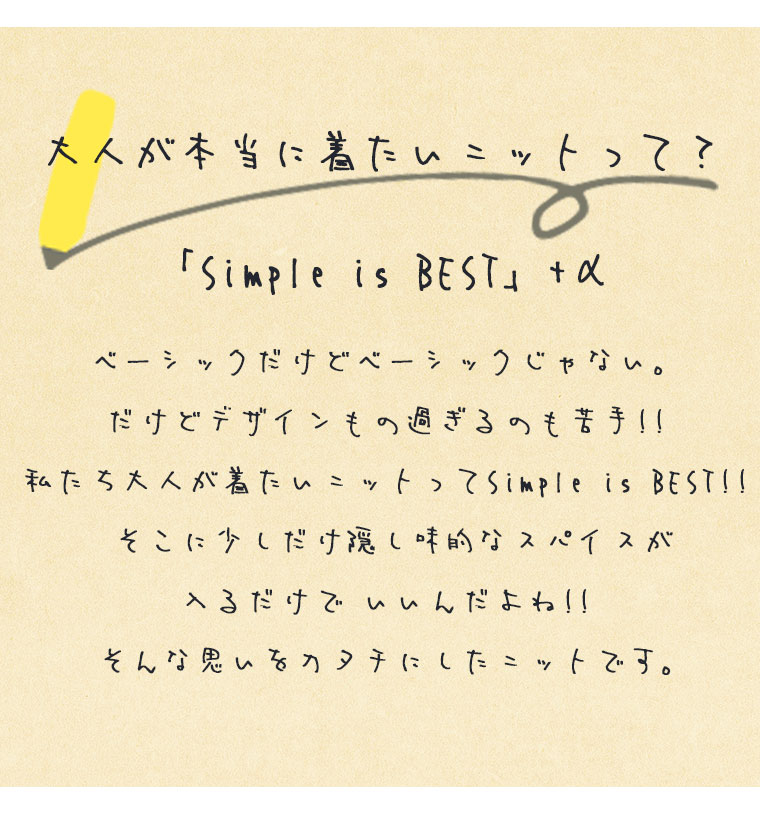 大人が本当に着たいニットって?
「Simple is BEST」+α
ベーシックだけどベーシックじゃない。
だけどデザインもの過ぎるのも苦手!!
私たち大人が着たいニットってSimple is BEST!!
そこに少しだけ隠し味的なスパイスが
入るだけでいいんだよね!!
そんな思いをカタチにしたニットです。